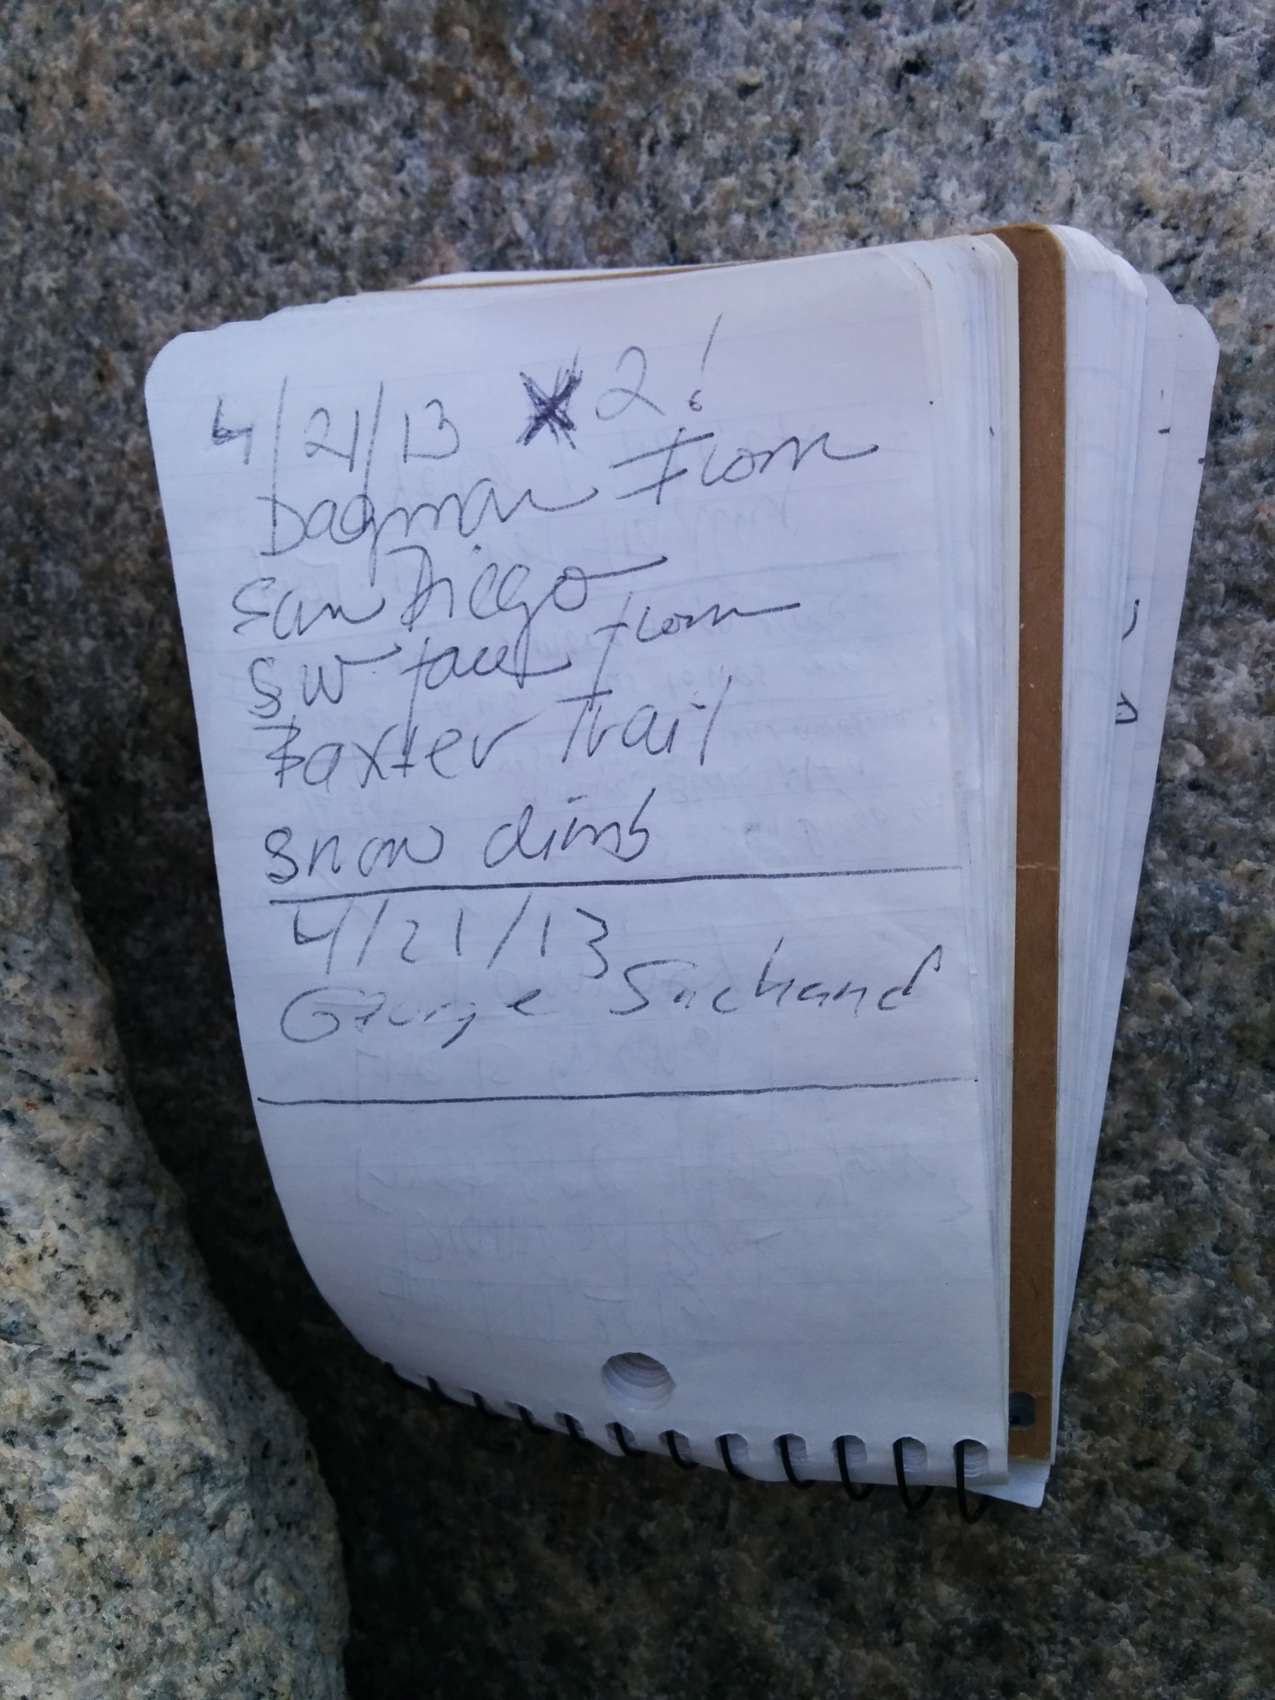 4/21/13 X 2!
Dagmar From
San Diego
SW face from
Baxter Trail
Snow climb
4/21/13
George Suchand